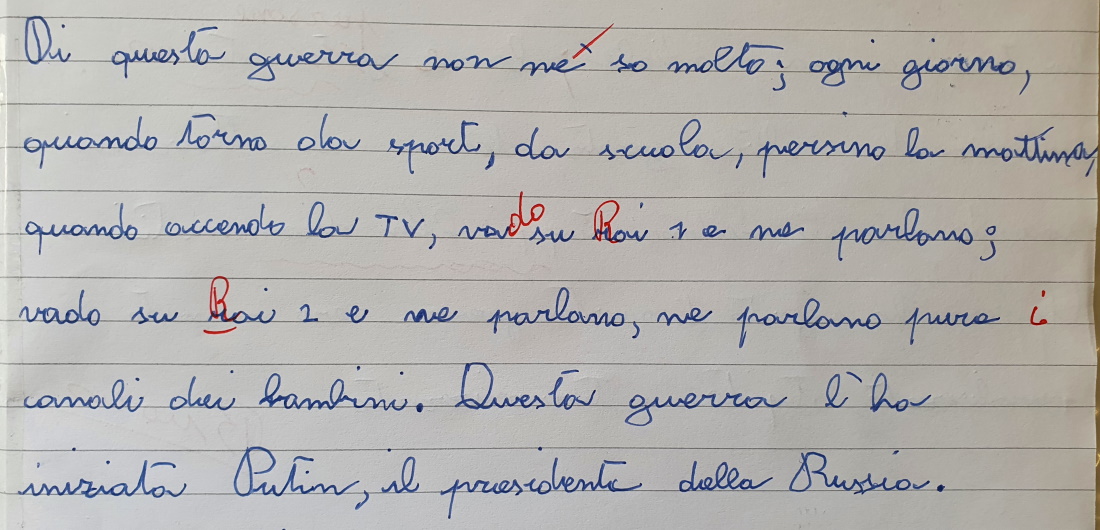 Di questa guerra non ne so molto; ogni giorno,
quando torno da sport, da scuola, persino la mattina,
quando accendo la TV, vado su Rai 1 e ne parlano;
vado su Rai 2 e ne parlano, ne parlano pure i
canali dei bambini. Questa guerra l'ha
iniziata Putin, il presidente della Russia.